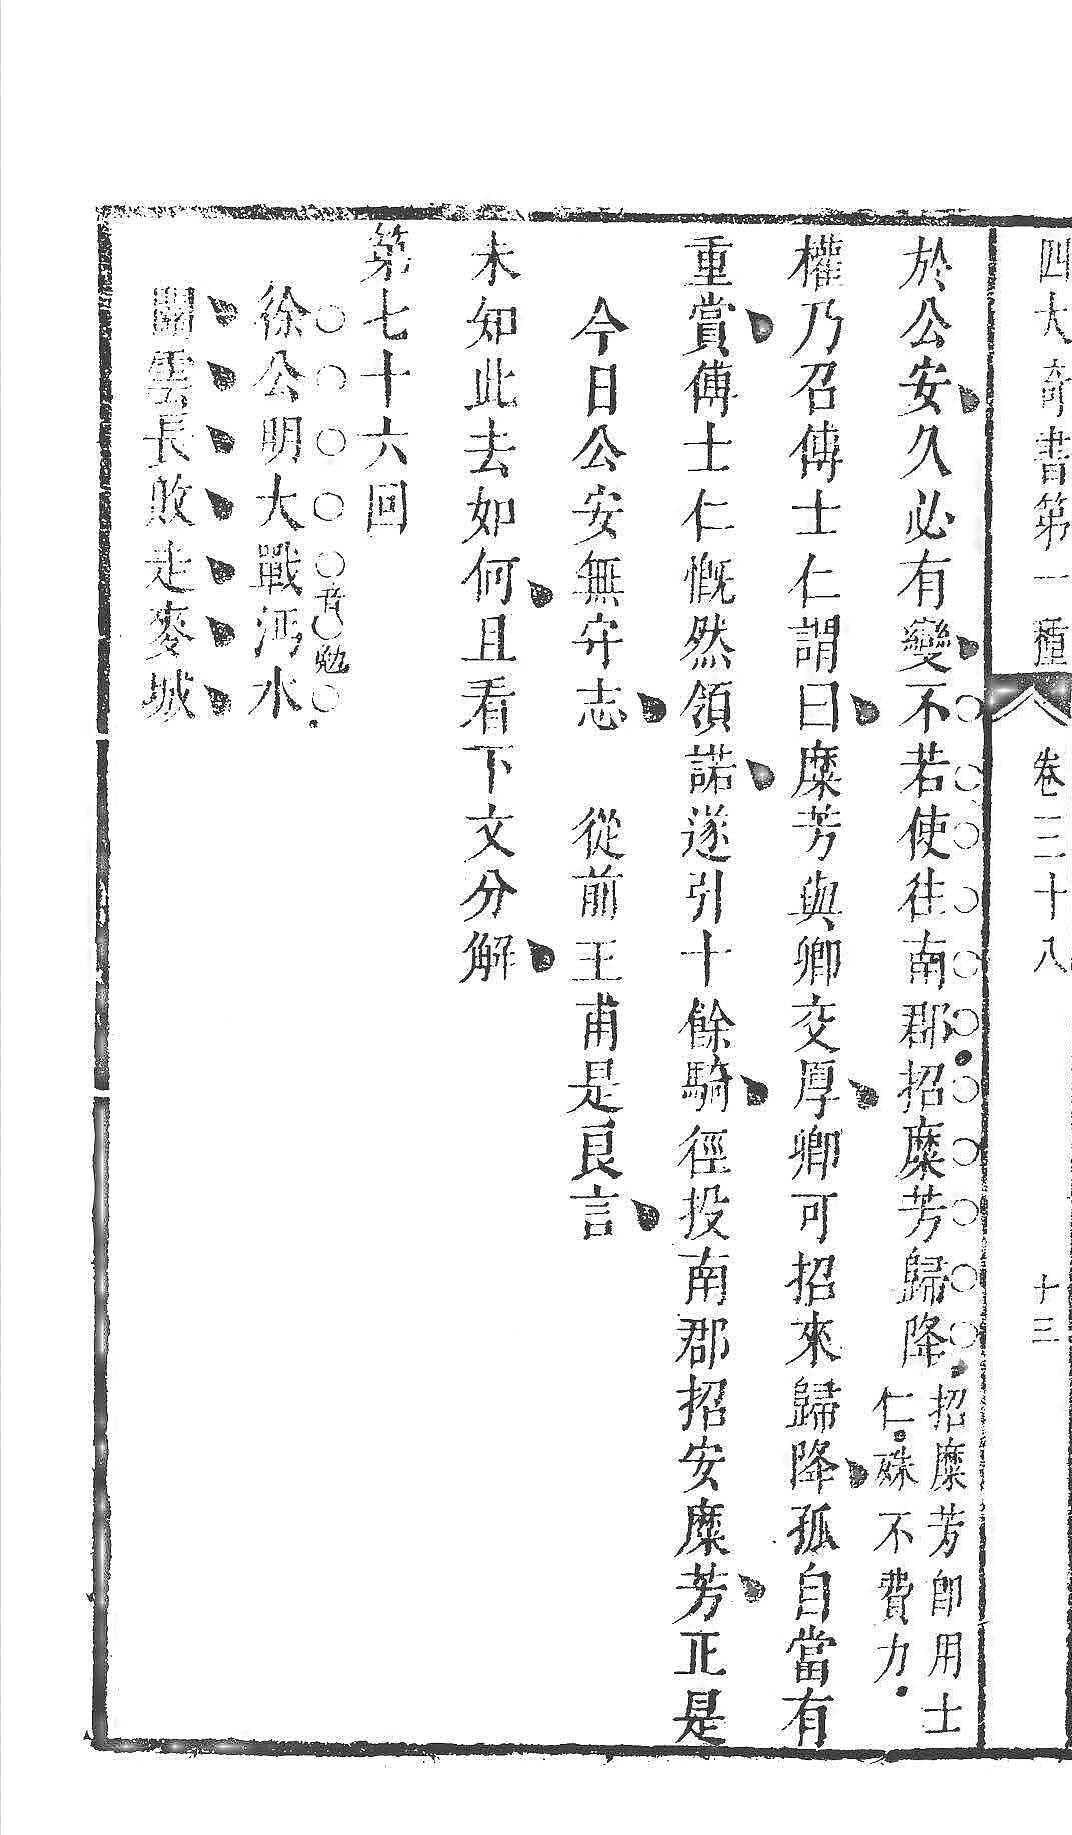 四大奇書第一種 卷三十八 十三
於公安久必有變不若使往南郡招糜芳歸降招糜芳卽用士仁殊不費力
權乃召傅士仁謂曰糜芳與卿交厚卿可招來歸降孤自當有
重賞傅士仁慨然領諾遂引十餘騎徑投南郡招安糜芳正是
今日公安無守志 從前王甫是良言
未知此去如何且看下文分解
第七十六回
徐公明大戰沔水音勉
關雲長敗走麥城